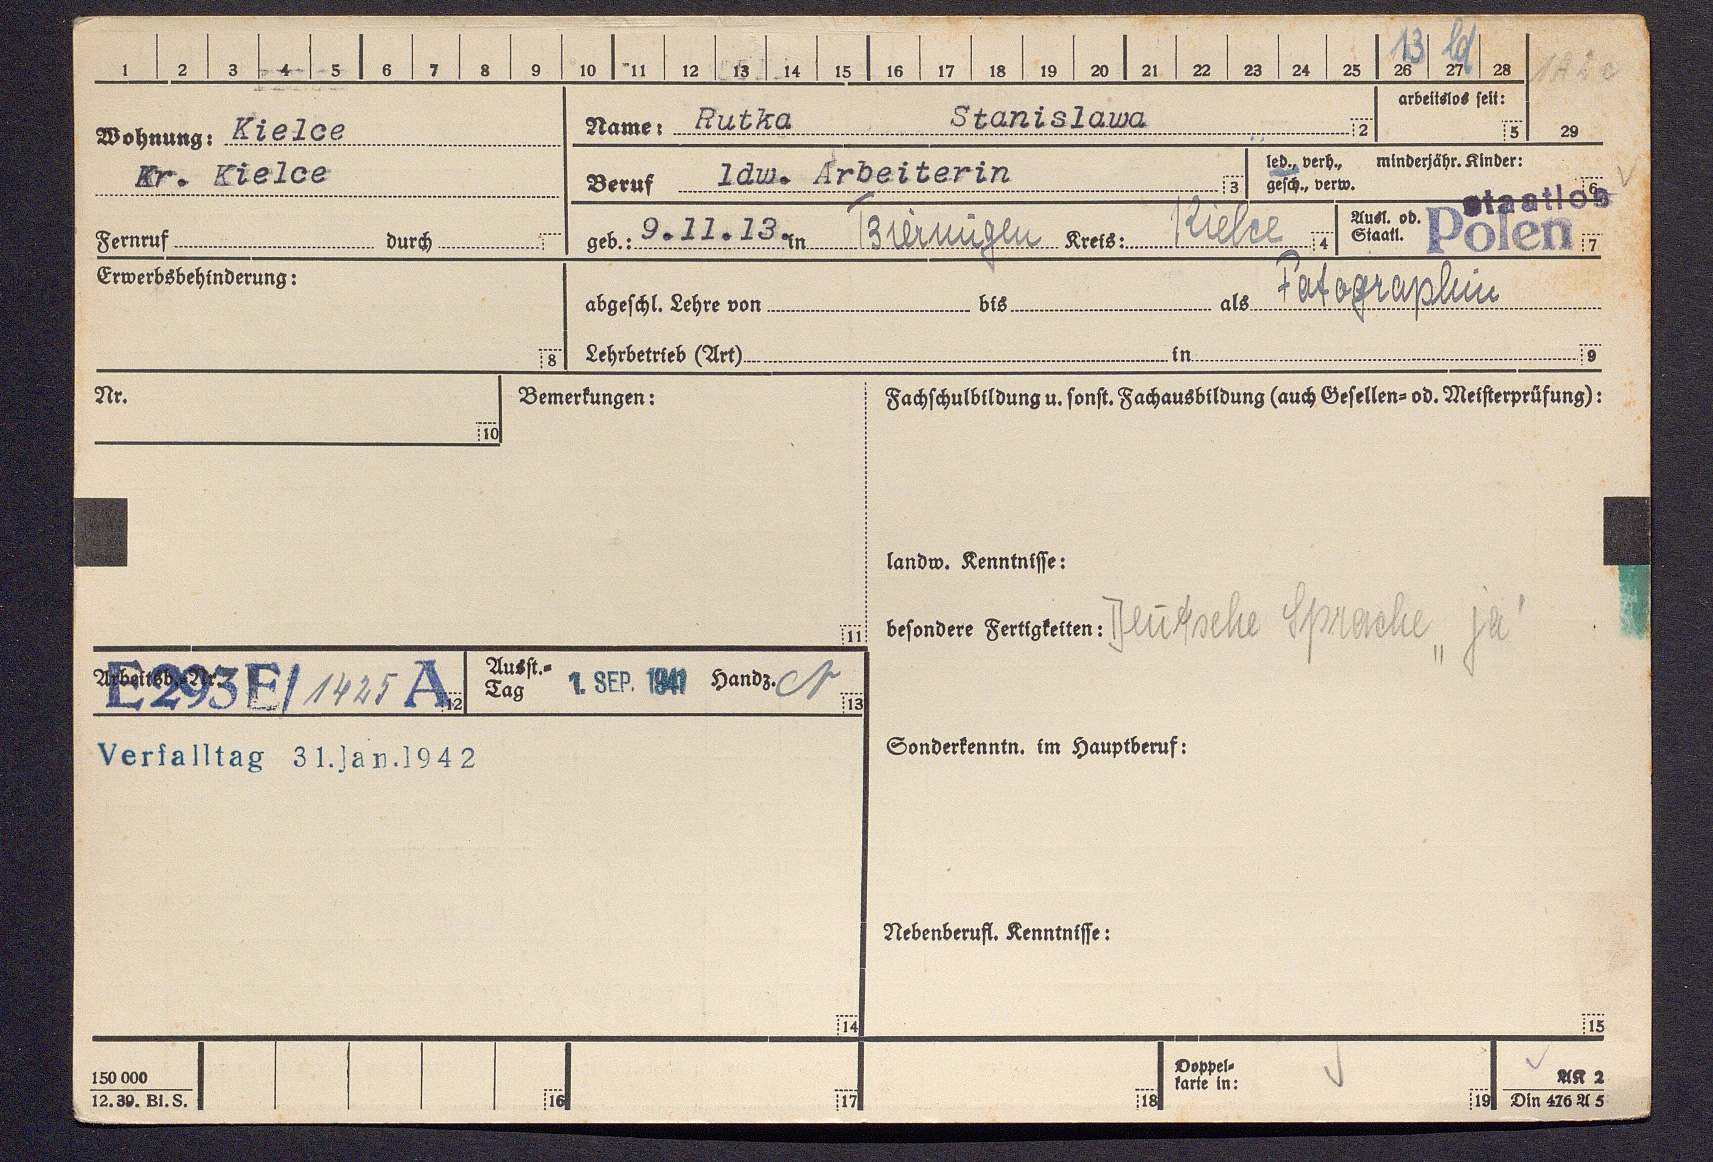 13 ld
1 2 3 4 5 6 7 8 9 10 11 12 13 14 15 16 17 18 19 20 21 22 23 24 25 26 27 28
Wohnung: Kielce
Kr. Kielce
Fernruf durch
Name: Rutka Stanislawa 2
arbeitslos seit: 5
29
Beruf ldw. Arbeiterin 3
led., verh., minderjähr. Kinder:
gesch., verw. 6
geb.: 9.11.13. in Kreis: Kielce 4
Ausl. od.
Staatl. staatlos
Polen 7
Erwerbsbehinderung:
8
abgeschl. Lehre von bis als Fotographin
Lehrbetrieb (Art) in 9
Nr.
10
Bemerkungen:
11
Fachschulbildung u. sonst. Fachausbildung (auch Gesellen= od. Meisterprüfung):
landw. Kenntnisse:
besondere Fertigkeiten: Deutsche Sprache „ja"
Arbeitsb.=Nr. E293E/1425 A 12
Ausst.=
Tag 1. SEP. 1941 Handz. 13
Verfalltag 31.Jan.1942
14
Sonderkenntn. im Hauptberuf:
Nebenberufl. Kenntnisse:
15
150 000
12. 39. Bl. S.
16 17 18
Doppel=
karte in: 19
AK 2
Din 476 A 5